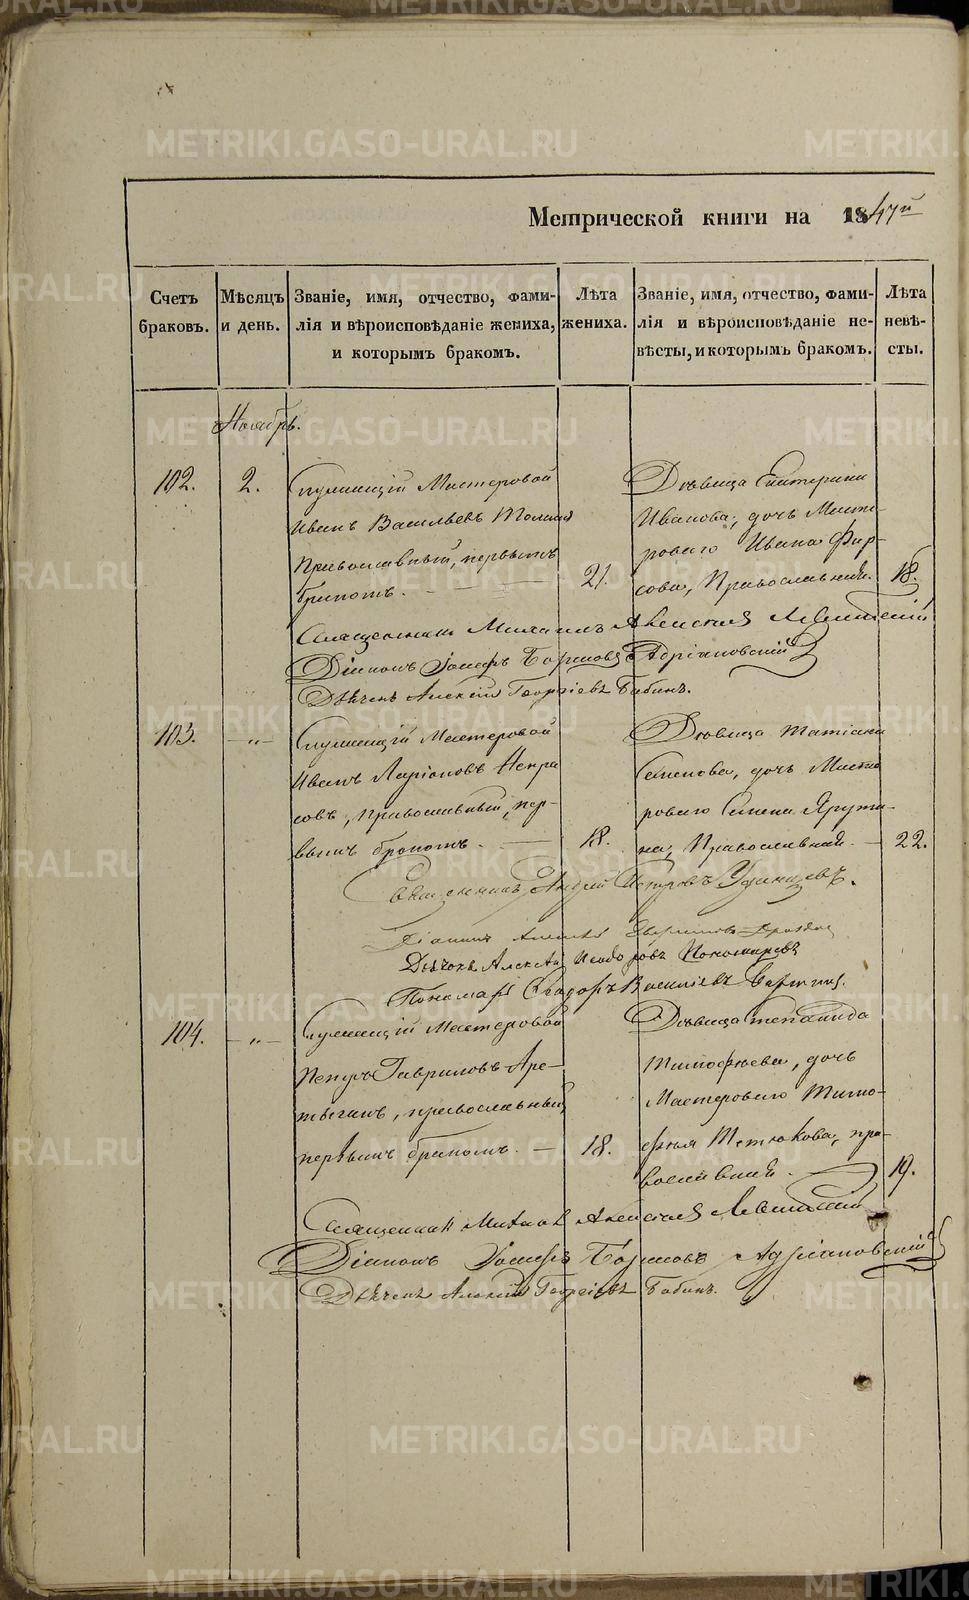 Метрической книги на 1847й
Счетъ браковъ.
Мѣсяцъ и день.
Званіе, имя, отчество, фами-
лія и вѣроисповѣданіе жениха,
и которымъ бракомъ.
Лѣта жениха.
Званіе, имя, отчество, фами-
лія и вѣроисповѣданіе не-
вѣсты, и которымъ бракомъ.
Лѣта невѣ-
сты.
Ноябрь.
102.
2.
Служащій Мастеровой
Иванъ Васильевъ
Православный, первымъ
бракомъ.
21.
Дѣвица Екатерина
Иванова, дочь Масте-
роваго Ивана Фир-
сова, Православная.
18.
Священникъ Михаилъ Алексіевъ Левитскій
Діаконъ Іосифъ Борисовъ Адріановскій
Дьячекъ Алексій Георгіевъ Бабинъ.
103.
-"-
Служащій Мастеровой
Иванъ Ларіоновъ Некра
совъ, православный, пер-
вымъ бракомъ.
18.
Дѣвица Татіана
Семенова, дочь Масте
роваго Семена Ярути-
на, Православная.
22.
Священникъ Андрей Петровъ Удинцевъ.
Діаконъ Алексѣй
Дьячекъ Алексѣй Исидоровъ Пономаревъ
Пономарь Ѳедоръ Василіевъ
104.
-"-
Служащій Мастеровой
Петръ Гавриловъ Аре-
, православный,
первымъ бракомъ.
18.
Дѣвица Степанида
Тимофѣева, дочь
Мастероваго Тимо-
фѣя Тетюкова, пра-
вославная.
19.
Священникъ Михаилъ Алексіевъ Левитскій
Діаконъ Іосифъ Борисовъ Адріановскій
Дьячекъ Алексій Георгіевъ Бабинъ.
METRIKI.GASO-URAL.RU